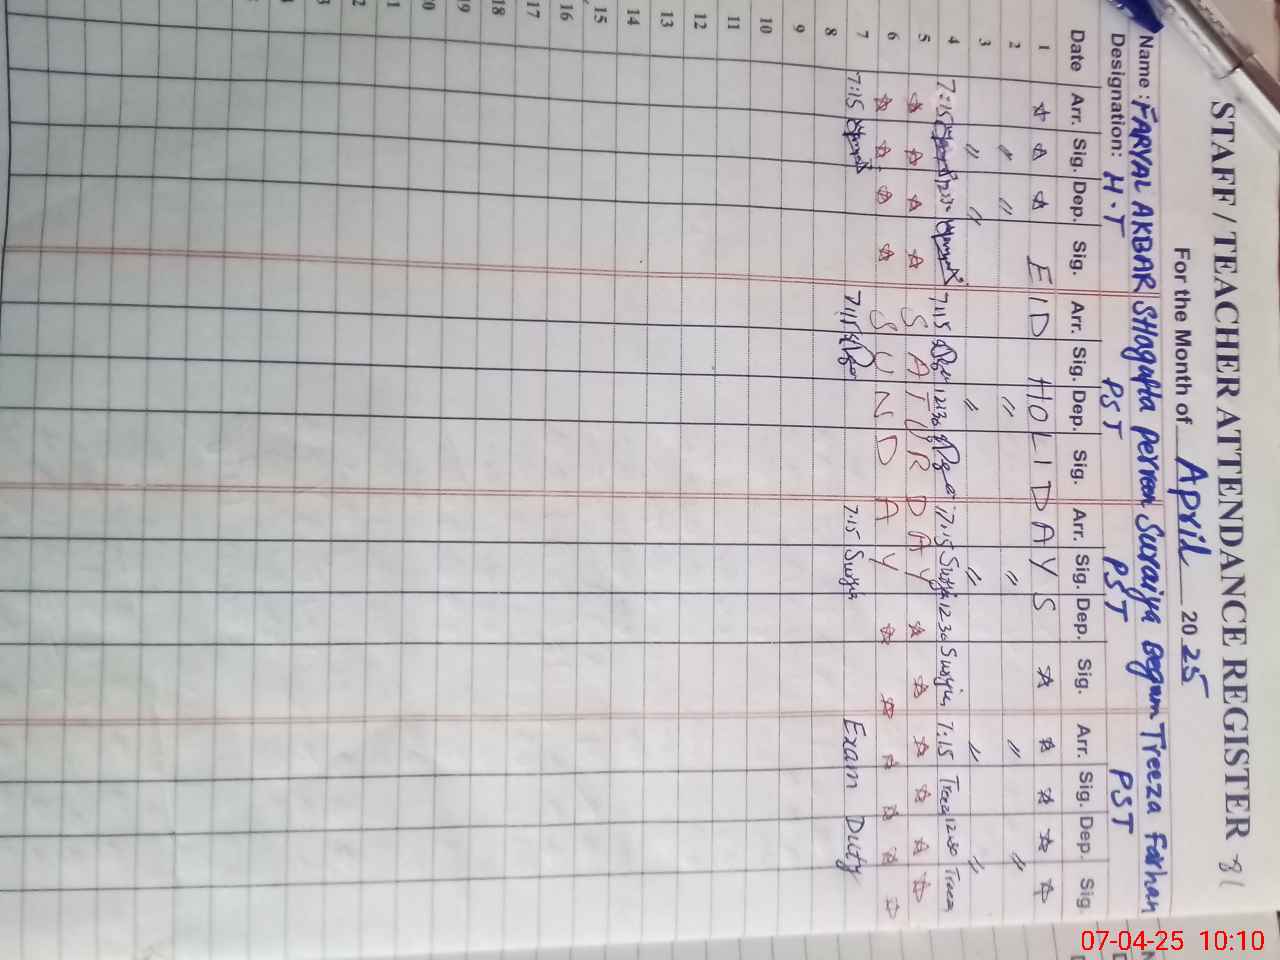 STAFF / TEACHER ATTENDANCE REGISTER 81
For the Month of April 2025
Name : FARYAL AKBAR SHagufta perveen Suraiya Begum Treeza farhan
Designation: H.T PST PST PST
Date Arr. Sig. Dep. Sig. Arr. Sig. Dep. Sig. Arr. Sig. Dep. Sig. Arr. Sig. Dep. Sig.
1 ☆ ☆ ☆ EID HOLIDAYS ☆ ☆ ☆ ☆ ☆
2 〃 〃 〃 〃 〃 〃
3 〃 〃 〃 〃 〃 〃
4 7:15 7:15 12:30 7:15 12 30 7:15 Treeza 12:30 Treeza
5 ☆ ☆ ☆ ☆ SATURDAY ☆ ☆ ☆ ☆ ☆ ☆
6 ☆ ☆ ☆ ☆ SUNDAY ☆ ☆ ☆ ☆ ☆ ☆
7 7:15 7:15 7.15 Exam Duty
8
9
10
11
12
13
14
15
16
17
18
19
20
07-04-25 10:10